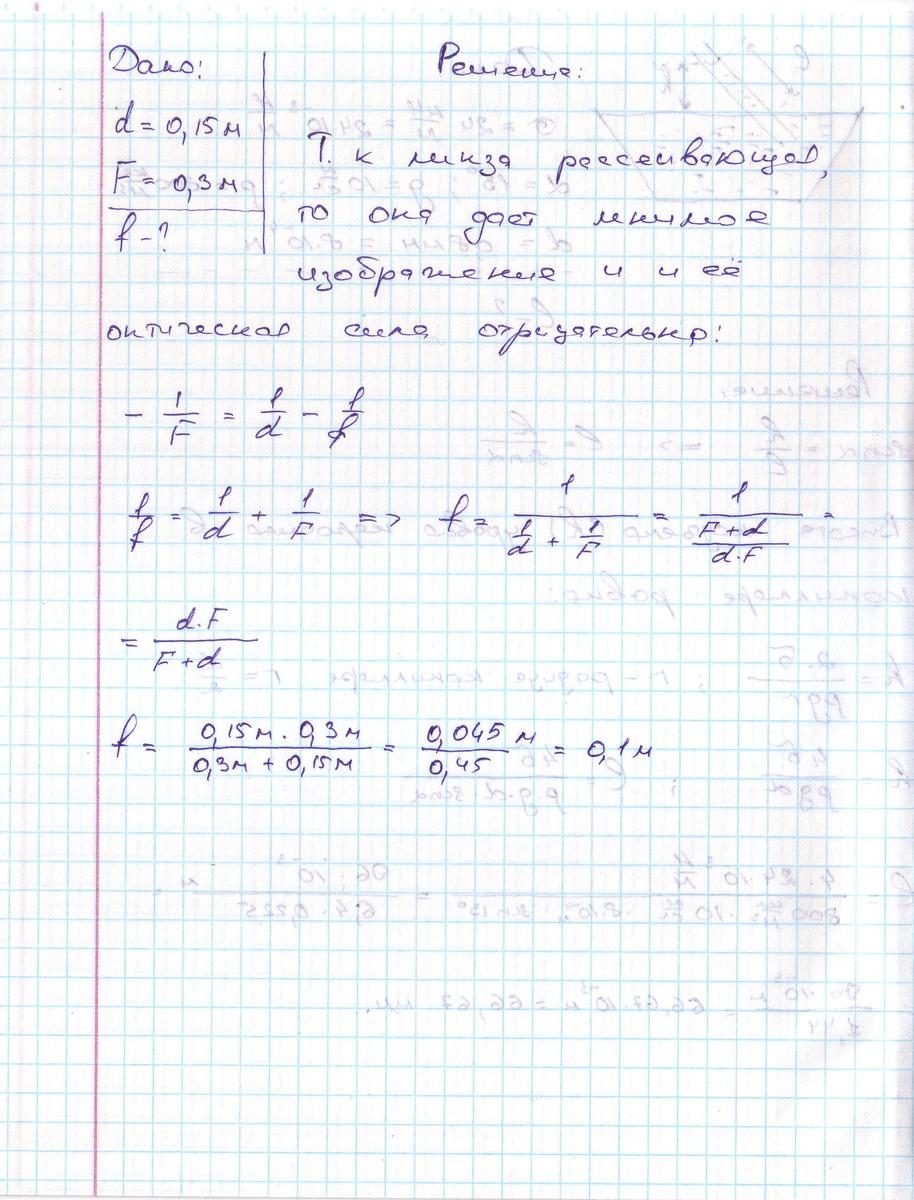 Дано:
Решение:
d = 0,15 м
F = 0,3 м
f - ?
Т. к линза рассеивающая,
то она дает мнимое
изображение и и её
оптическая сила отрицательна:
- 1/F = 1/d - 1/f
1/f = 1/d + 1/F => f = 1/(1/d + 1/F) = 1/((F+d)/(d.F)) =
= d.F/(F+d)
f = (0,15м . 0,3м)/(0,3м + 0,15м) = 0,045/0,45 м = 0,1 м